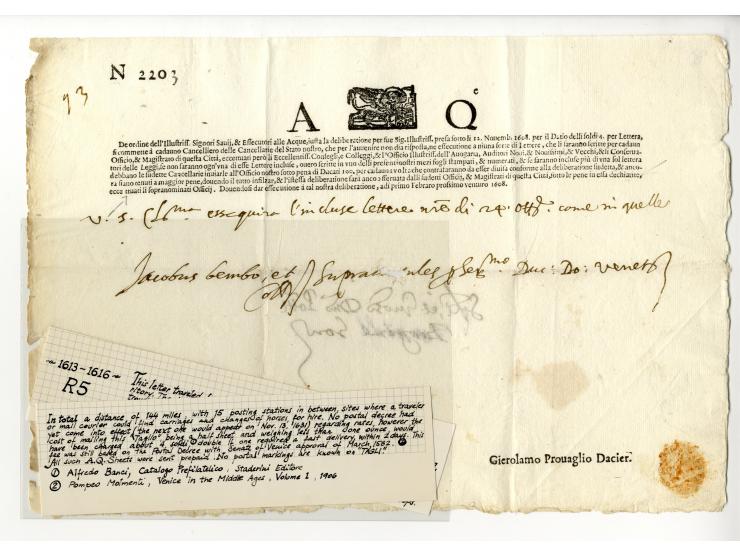 N 2203
93
A Q
c
De ordine dell'Illustriss. Signori Sauij, & Essecutori alle Acque, iusta la deliberatione per sue Sig. Illustriss. presa sotto li 12. Nouemb. 1608. per il Datio delli soldi 4. per Lettera,
si commette à cadauno Cancelliero delle Cancellarie del Stato nostro, che per l'auuenire non dia risposta, ne essecutione a niuna sorte di Lettere, che li saranno scritte per cadaun
Officio, & Magistrato di questa Città, eccettuati però li Eccellentiss. Collegij, e Colleggi, & l'Officio Illustriss. dell'Auogaria, Auditori Noui, & Nouissimi, & Vecchi, & li Conserua-
tori delle Leggi, se non saranno ogn'vna di esse Lettere incluse, ouero scritte in vno delli presenti nostri mezi fogli stampati, & numerati, & se saranno incluse più di vna sol lettera
debbano le sudette Cancellarie inuiarle all'Officio nostro sotto pena di Ducati 100. per cadauna volta che contrafaranno da esser diuisi conforme alla deliberatione sudetta, & anco-
ra siano tenuti a maggior pene, douendo il tutto infilzar, & l'istessa deliberatione sarà anco osseruata dalli sudetti Officij, & Magistrati di questa Città, sotto le pene in essa dechiarite,
eccettuati li sopranominati Officij. Douendosi dar essecutione à tal nostra deliberatione, adi primo Febraro prossimo venturo 1608.
V. S. Cl.ma essequirà l'incluse lettere nre di 24. Ottb. come in quelle
Jacobus Bembo, et
Supra Ser.mo Duc: Do: Venet
Gierolamo Prouaglio Dacier.
~ 1613-1616 ~
R5
This letter traveled
itory. The
In total a distance of 144 miles, with 15 posting stations in between, sites where a traveler
or mail courier could find carriages and changes of horses, for hire. No postal decree had
yet come into effect (the next one would appear on Nov. 13, 1631) regarding rates, however the
cost of mailing this "Taglio" being a half sheet and weighing less than ¼ one ounce, would
have been charged about 4 soldi or double if one required a fast delivery, within 2 days. This
fee was still based on the Postal Decree with Senate of Venice approval of March, 1582. ②
All such A.Q. Sheets were sent prepaid. No postal markings are known on "TAGLI"
① Alfredo Banci, Catalogo Prefilatelico, Staderini Editore
② Pompeo Molmenti, Venice in the Middle Ages, Volume I, 1906